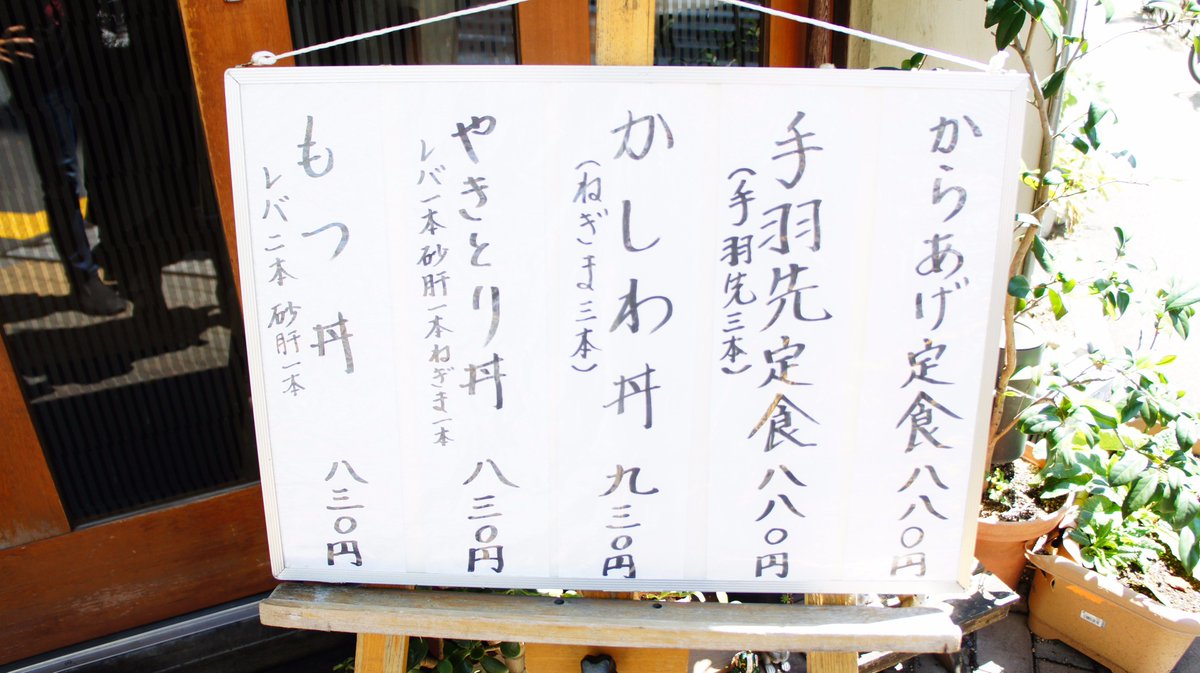 からあげ定食 八八〇円
手羽先定食 八八〇円
(手羽先三本)
かしわ丼 九三〇円
(ねぎま三本)
やきとり丼 八三〇円
レバー本砂肝一本ねぎま一本
もつ丼 八三〇円
レバ二本 砂肝一本